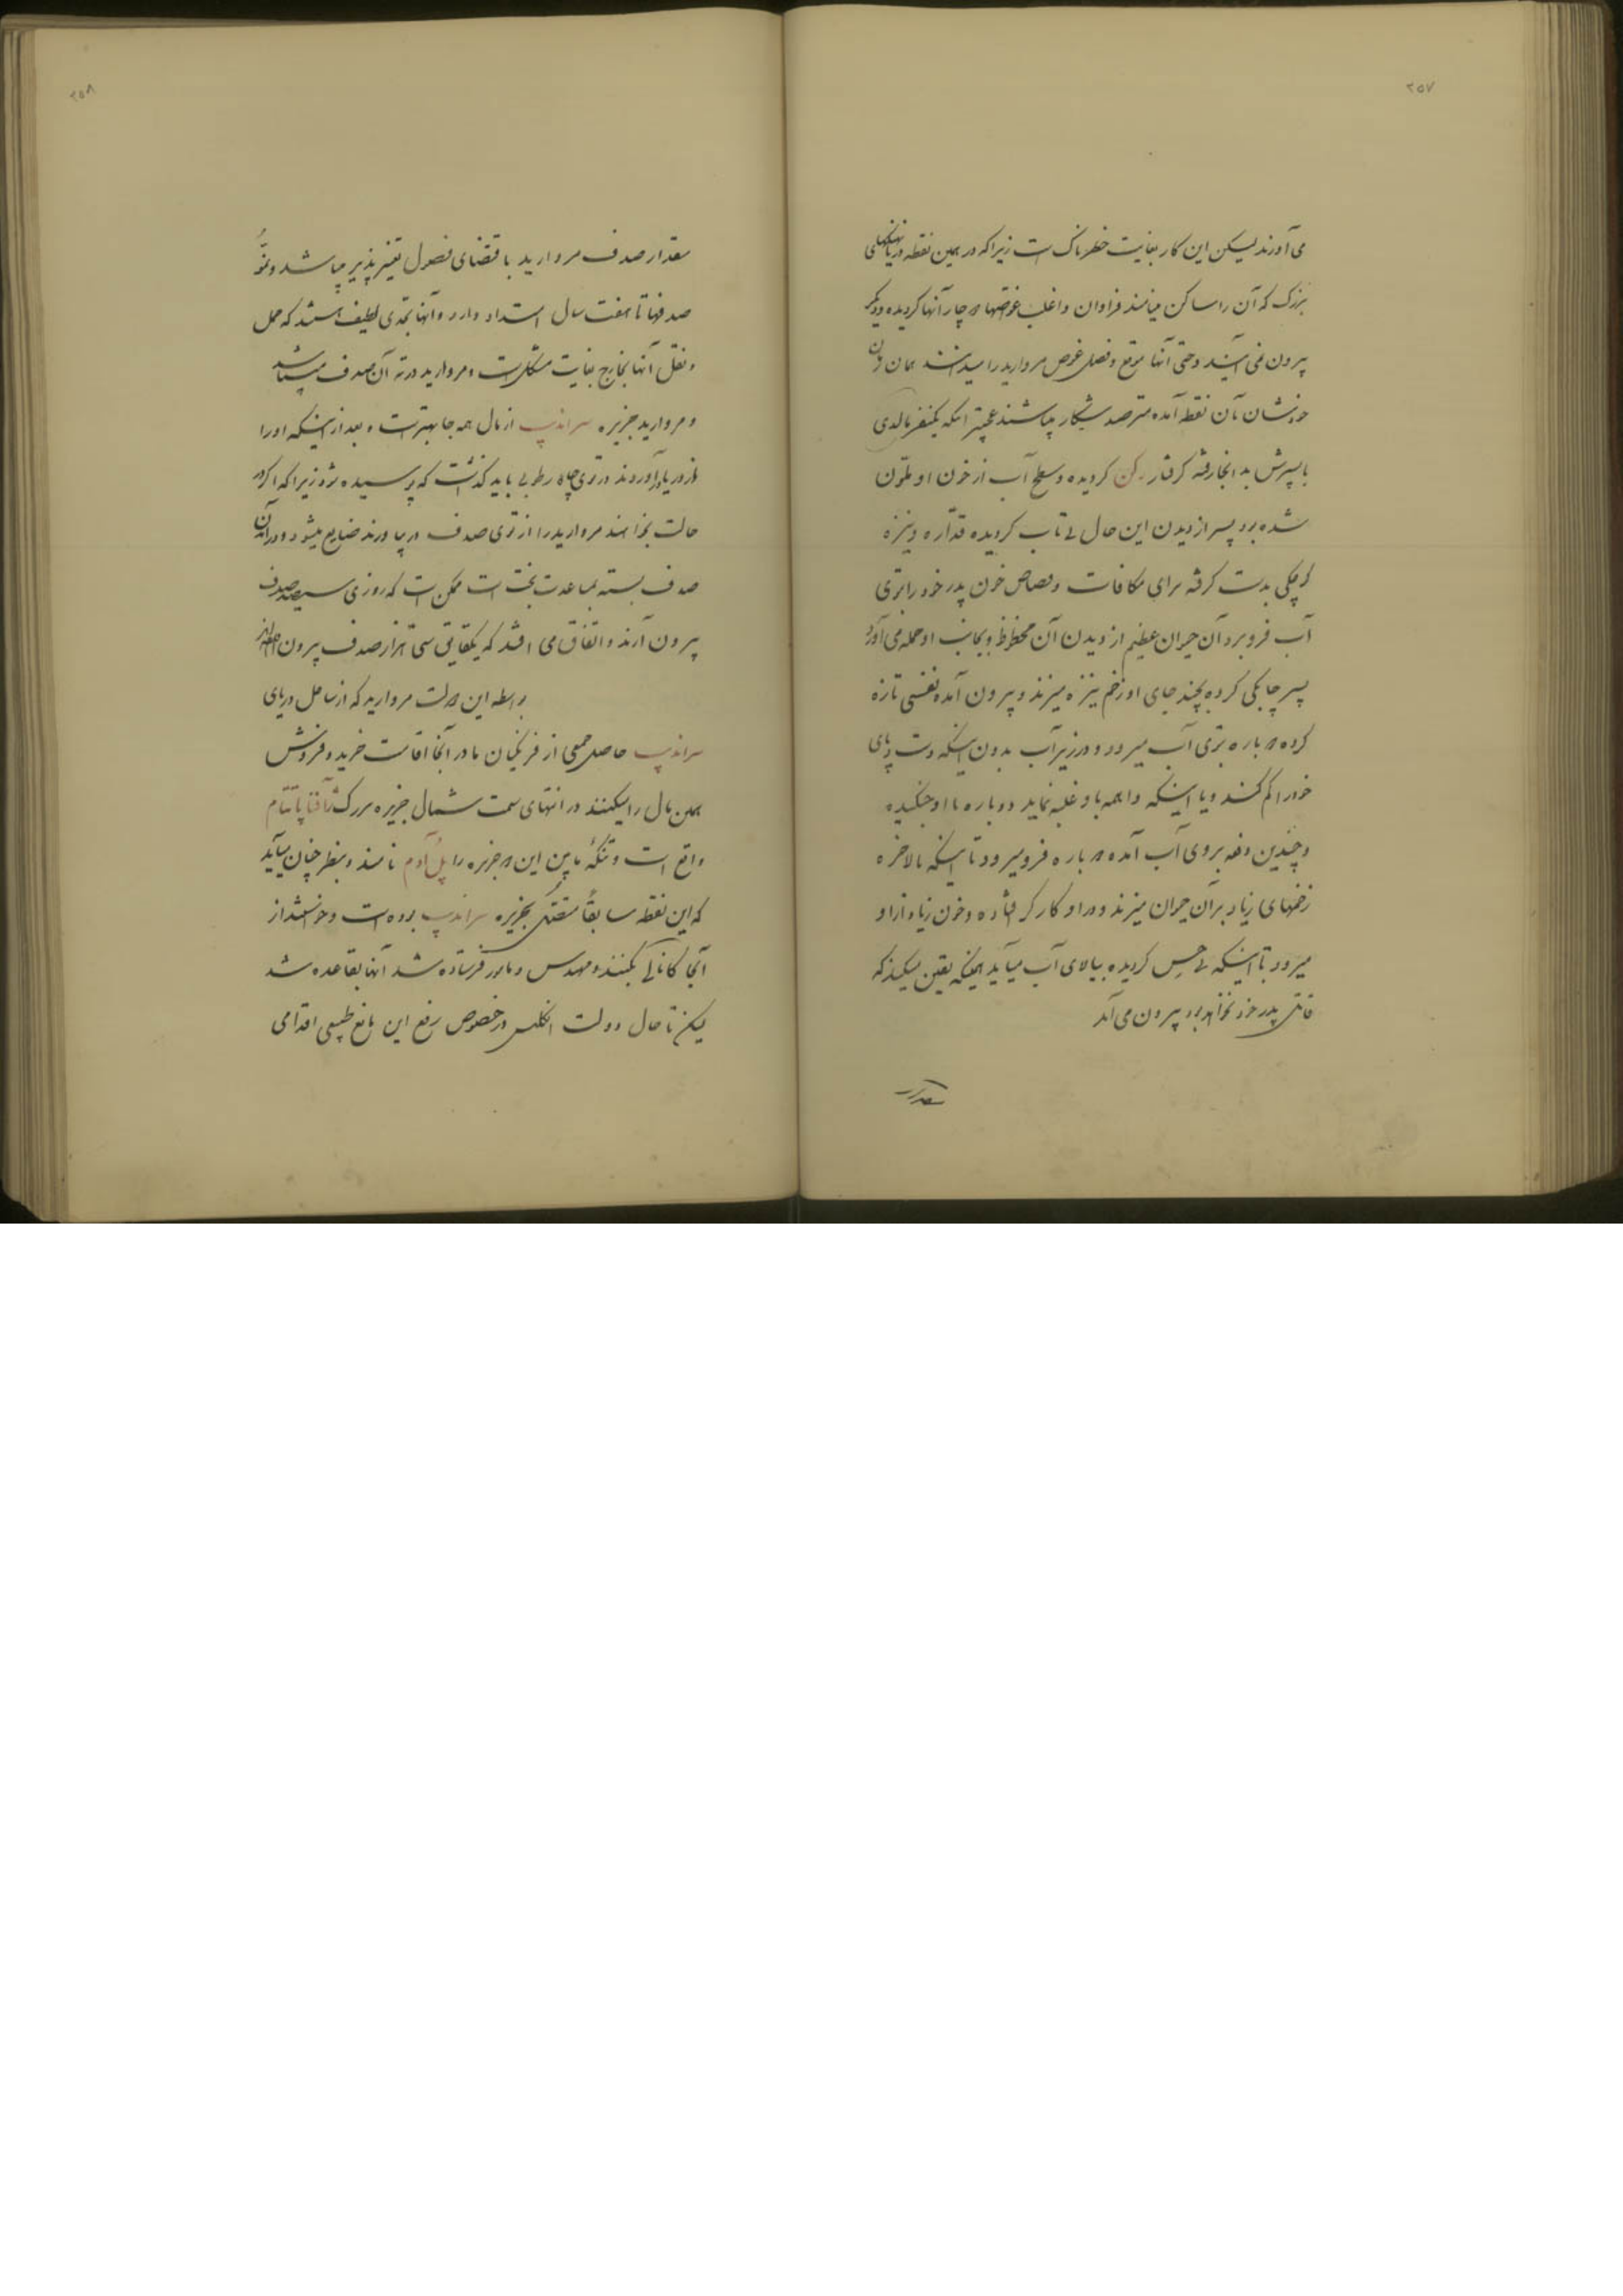 ۲۵۷
می آورند لیکن این کار بغایت خطرناک است زیرا که در همین نقطه دریا نهنگهای
بزرگ که آن را ساکن مینامند فراوان و اغلب غواصها دچار آنها گردیده و دیگر
بیرون نمی آیند و حتی آنها موقع و فصل غوص مروارید را میدانند همان زمان
خودشان بآن نقطه آمده مترصد شکار میباشند عجبتر اینکه یکنفر مالدی
با پسرش بدانجا رفته گرفتار گردیده و سطح آب از خون او ملون
شده بود پسر از دیدن این حال بی تاب گردیده قداره و نیزه
کوچکی بدست گرفته برای مکافات و قصاص خون پدر خود را بتوی
آب فرو برد آن حیوان عظیم از دیدن آن محظوظ و بجانب او حمله می آورد
پسر چابکی کرده بچند جای او زخم نیزه میزند و بیرون آمده نفسی تازه
کرده دوباره بتوی آب میرود و در زیر آب بدون اینکه دست و پای
خود را گم کند و یا اینکه واهمه باو غلبه نماید دوباره با او جنگیده
و چندین دفعه بروی آب آمده دوباره فرو میرود تا اینکه بالاخره
زخمهای زیاد بر آن حیوان میزند و در او کارگر افتاده و خون زیاد از او
میرود تا اینکه بی حس گردیده ببالای آب میآید همینکه یقین میکند که
قاتل پدر خود نخواهد بود بیرون می آمد
مقدار
۲۵۸
مقدار صدف مروارید باقتضای فصول تغییر پذیر میباشد و نمو
صدفها تا هفت سال امتداد دارد و آنها بحدی لطیف هستند که حمل
و نقل آنها بخارج بغایت مشکل است و مروارید در ته آن صدف میباشد
و مروارید جزیره سراندیب از مال همه جا بهتر است و بعد از اینکه او را
از دریا در آوردند در توی چاه رطوبی باید گذاشت که پوسیده شود زیرا که اگر در
حالت بخواهند مروارید را از توی صدف در بیاورند ضایع میشود و در آوردن
صدف بسته بمساعدت بخت است ممکن است که روزی سیصد صدف
بیرون آرند و اتفاق می افتد که یکقایق سی هزار صدف بیرون
بواسطه این دولت مروارید که از ساحل دریای
سراندیب حاصل جمعی از فرنگیان ما در آنجا اقامت خرید و فروش
همین مال را میکنند در انتهای سمت شمال جزیره بزرگ ژافناپاتنام
واقع است و تنگه مابین این دو جزیره را پل آدم نامند و بنظر چنان میآید
که این نقطه سابقاً متصل بجزیره سراندیب بوده است و خواستند از
آنجا کانالی بکنند و مهندس و مامور فرستاده شد آنها بقاعده شد
لیکن تا حال دولت انگلیس در خصوص رفع این مانع طبیعی اقدامی